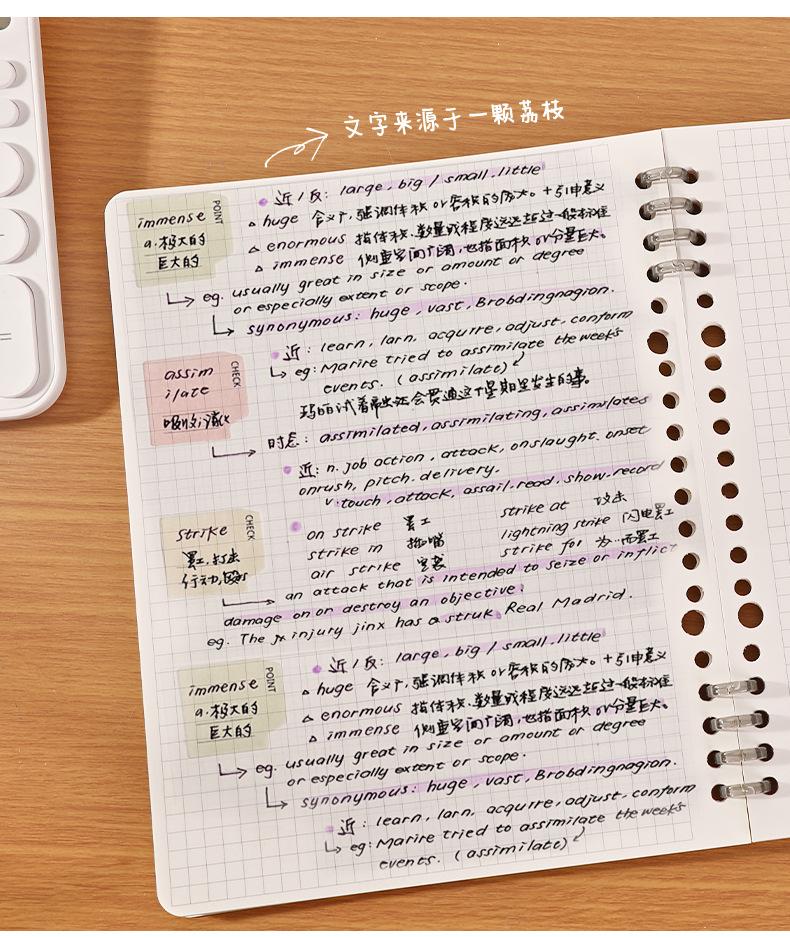 文字来源于一颗荔枝
POINT
immense
a.极大的
巨大的
近/反: large, big / small.little
△ huge 含义广,强调体积 or 容积的庞大。+引申义
△ enormous 指体积、数量或程度远远超过一般标准
△ immense 侧重空间广阔,也指面积 or 分量巨大。
eg. usually great in size or amount or degree
or especially extent or scope.
synonymous: huge, vast, Brobdingnagion.
CHECK
assim
ilate
吸收,消化
近: learn, larn, acquire, adjust, conform
eg: Marire tried to assimilate the weeks
events. (assimilate)
玛丽试着融会贯通这个星期里发生的事。
时态: assimilated, assimilating, assimilates
近: n. job action, attack, onslaught. onset
onrush, pitch. delivery.
v. touch, attack, assail. read. show. record
CHECK
strike
罢工,打击
行动,
on strike 罢工 strike at 攻击
strike in 插嘴 lightning strike 闪电罢工
air strike 空袭 strike for 为…而罢工
an attack that is intended to seize or inflict
damage on or destroy an objective.
eg. The injury jinx has a struk Real Madrid.
POINT
immense
a.极大的
巨大的
近/反: large, big / small.little
△ huge 含义广,强调体积 or 容积的庞大。+引申义
△ enormous 指体积、数量或程度远远超过一般标准
△ immense 侧重空间广阔,也指面积 or 分量巨大。
eg. usually great in size or amount or degree
or especially extent or scope.
synonymous: huge, vast, Brobdingnagion.
近: learn, larn, acquire, adjust, conform
eg: Marire tried to assimilate the weeks
events. (assimilatc)